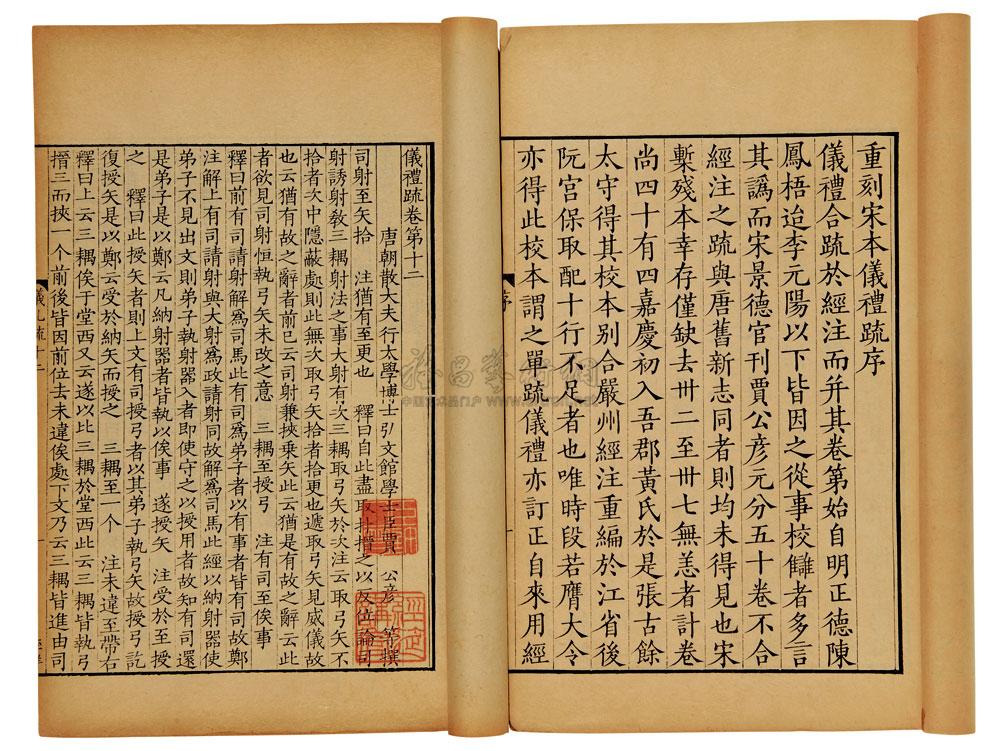 重刻宋本儀禮疏序
儀禮合疏於經注而并其卷第始自明正德陳
鳳梧迨李元陽以下皆因之從事校讎者多言
其譌而宋景德官刊賈公彥元分五十卷不合
經注之疏與唐舊新志同者則均未得見也宋
槧殘本幸存僅缺去卅二至卅七無恙者計卷
尚四十有四嘉慶初入吾郡黃氏於是張古餘
太守得其校本别合嚴州經注重編於江省後
阮宮保取配十行不足者也唯時段若膺大令
亦得此校本謂之單疏儀禮亦訂正自來用經
序
儀禮疏卷第十二
唐朝散大夫行太學博士弘文館學士臣賈 公彥 等撰
司射至矢拾 注猶有至更也 釋曰自此盡取扑搢之以反位論司
射誘射敎三耦射法之事大射有次三耦取弓矢於次注云取弓矢不
拾者次中隱蔽處則此無次取弓矢拾者拾更也遞取弓矢見威儀故
也云猶有故之辭者前已云司射兼挾乗矢此云猶是有故之辭云此
者欲見司射恒執弓矢未改之意 三耦至授弓 注有司至俟事
釋曰前有司請射解爲司馬此有司爲弟子者以有事者皆有司故鄭
注解上有司請射與大射爲政請射同故解爲司馬此經以納射器使
弟子不見出文則弟子執射器入者即使守之以授用者故知有司還
是弟子是以鄭云凡納射器者皆執以俟事 遂授矢 注受於至授
之 釋曰此授矢者則上文有司授弓者以其弟子執弓矢故授弓訖
復授矢是以鄭云受於納矢而授之 三耦至一个 注未違至帶右
釋曰上云三耦俟于堂西又云遂以此三耦於堂西此云三耦皆執弓
搢三而挾一个前後皆因前位去未違俟處下文乃云三耦皆進由司
儀礼疏十二